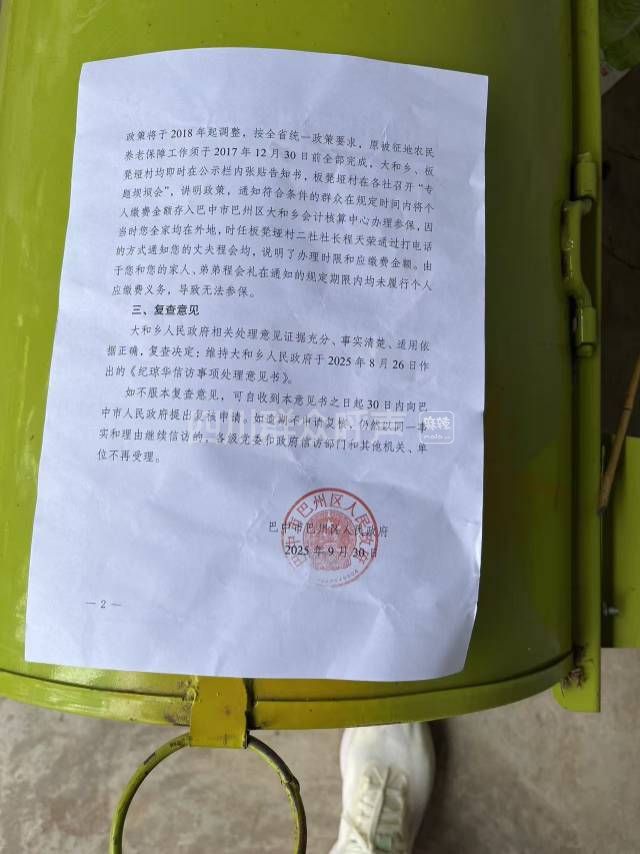 政策将于2018年起调整，按全省统一政策要求，原被征地农民
养老保障工作须于2017年12月30日前全部完成，大和乡、板
凳垭村均即时在公示栏内张贴告知书，板凳垭村在各社召开“专
题坝坝会”，讲明政策，通知符合条件的群众在规定时间内将个
人缴费金额存入巴中市巴州区大和乡会计核算中心办理参保，因
当时您全家均在外地，时任板凳垭村二社社长程天荣通过打电话
的方式通知您的丈夫程会均，说明了办理时限和应缴费金额。由
于您和您的家人、弟弟程会礼在通知的规定期限内均未履行个人
应缴费义务，导致无法参保。
三、复查意见
大和乡人民政府相关处理意见证据充分、事实清楚、适用依
据正确，复查决定：维持大和乡人民政府于2025年8月26日作
出的《纪琼华信访事项处理意见书》。
如不服本复查意见，可自收到本意见书之日起30日内向巴
中市人民政府提出复核申请。如逾期不申请复核，仍然以同一事
实和理由继续信访的，各级党委和政府信访部门和其他机关、单
位不再受理。
巴中市巴州区人民政府
2025年9月30日
巴中市巴州区人民政府
—2—
麻辣
mala.cn